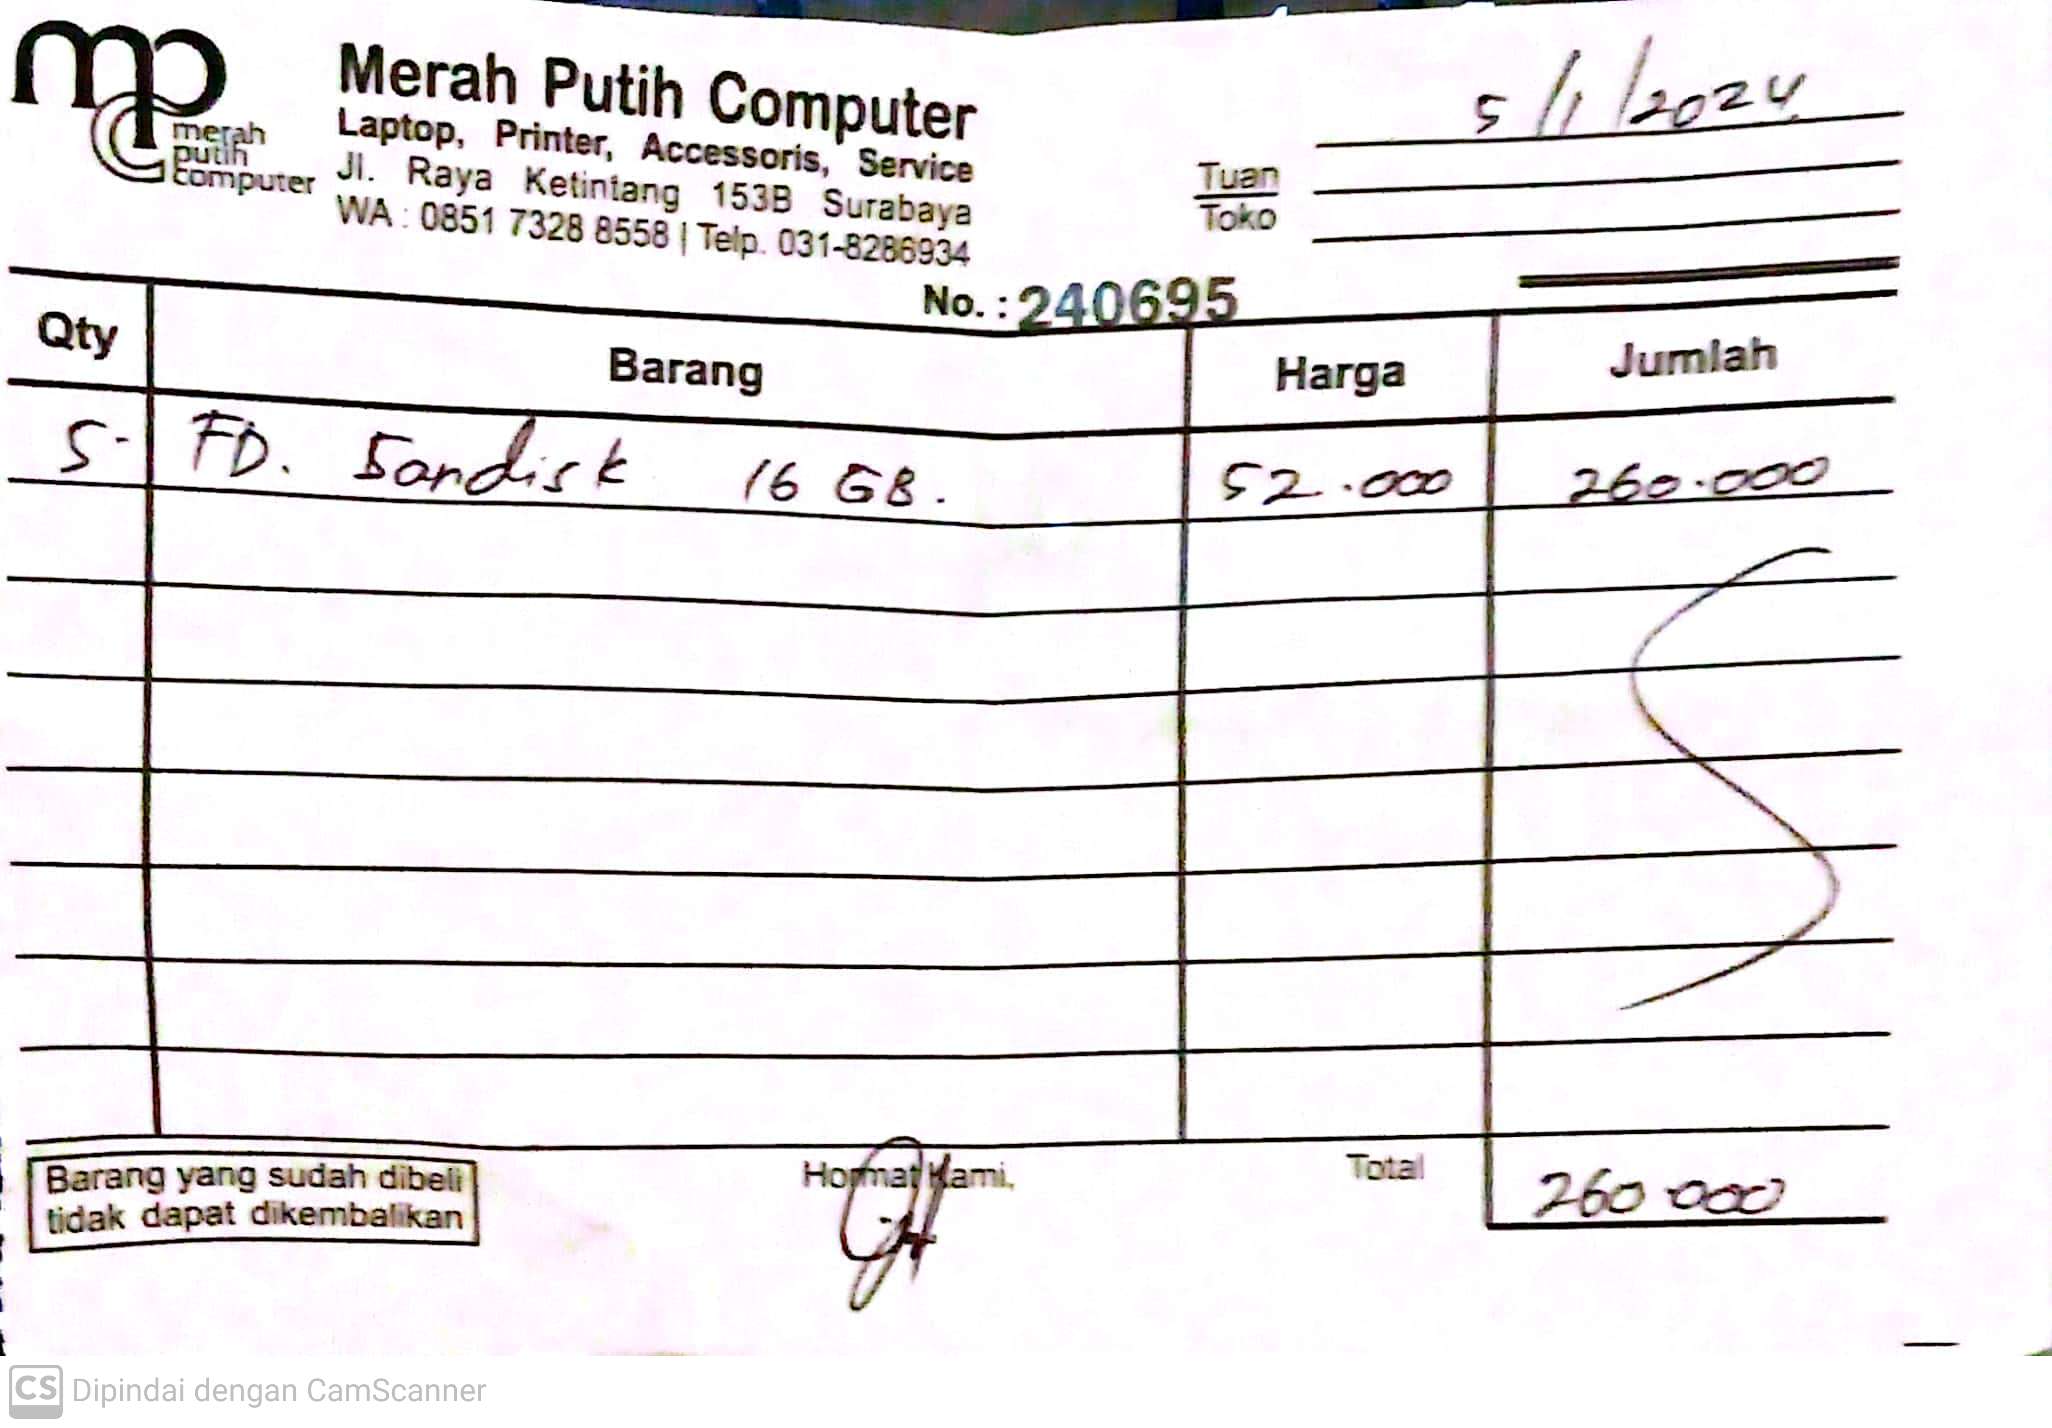 mpc
merah
putih
computer
Merah Putih Computer
Laptop, Printer, Accessoris, Service
Jl. Raya Ketintang 153B Surabaya
WA : 0851 7328 8558 | Telp. 031-8286934
5/1/2024
Tuan
Toko
No. : 240695
Qty Barang Harga Jumlah
5- FD. Sandisk 16 GB. 52.000 260.000
Barang yang sudah dibeli
tidak dapat dikembalikan
Hormat Kami,
Total 260 000
CS Dipindai dengan CamScanner